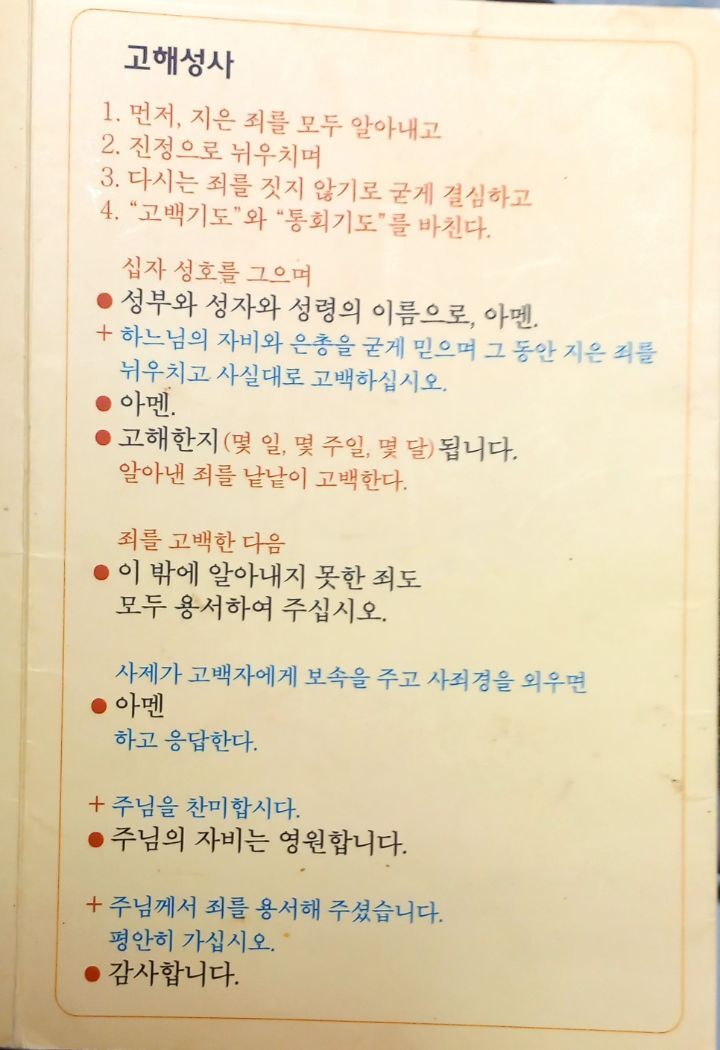 고해성사
1. 먼저, 지은 죄를 모두 알아내고
2. 진정으로 뉘우치며
3. 다시는 죄를 짓지 않기로 굳게 결심하고
4. “고백기도”와 “통회기도”를 바친다.
십자 성호를 그으며
● 성부와 성자와 성령의 이름으로, 아멘.
+ 하느님의 자비와 은총을 굳게 믿으며 그 동안 지은 죄를
뉘우치고 사실대로 고백하십시오.
● 아멘.
● 고해한지 (몇 일, 몇 주일, 몇 달) 됩니다.
알아낸 죄를 낱낱이 고백한다.
죄를 고백한 다음
● 이 밖에 알아내지 못한 죄도
모두 용서하여 주십시오.
사제가 고백자에게 보속을 주고 사죄경을 외우면
● 아멘
하고 응답한다.
+ 주님을 찬미합시다.
● 주님의 자비는 영원합니다.
+ 주님께서 죄를 용서해 주셨습니다.
평안히 가십시오.
● 감사합니다.